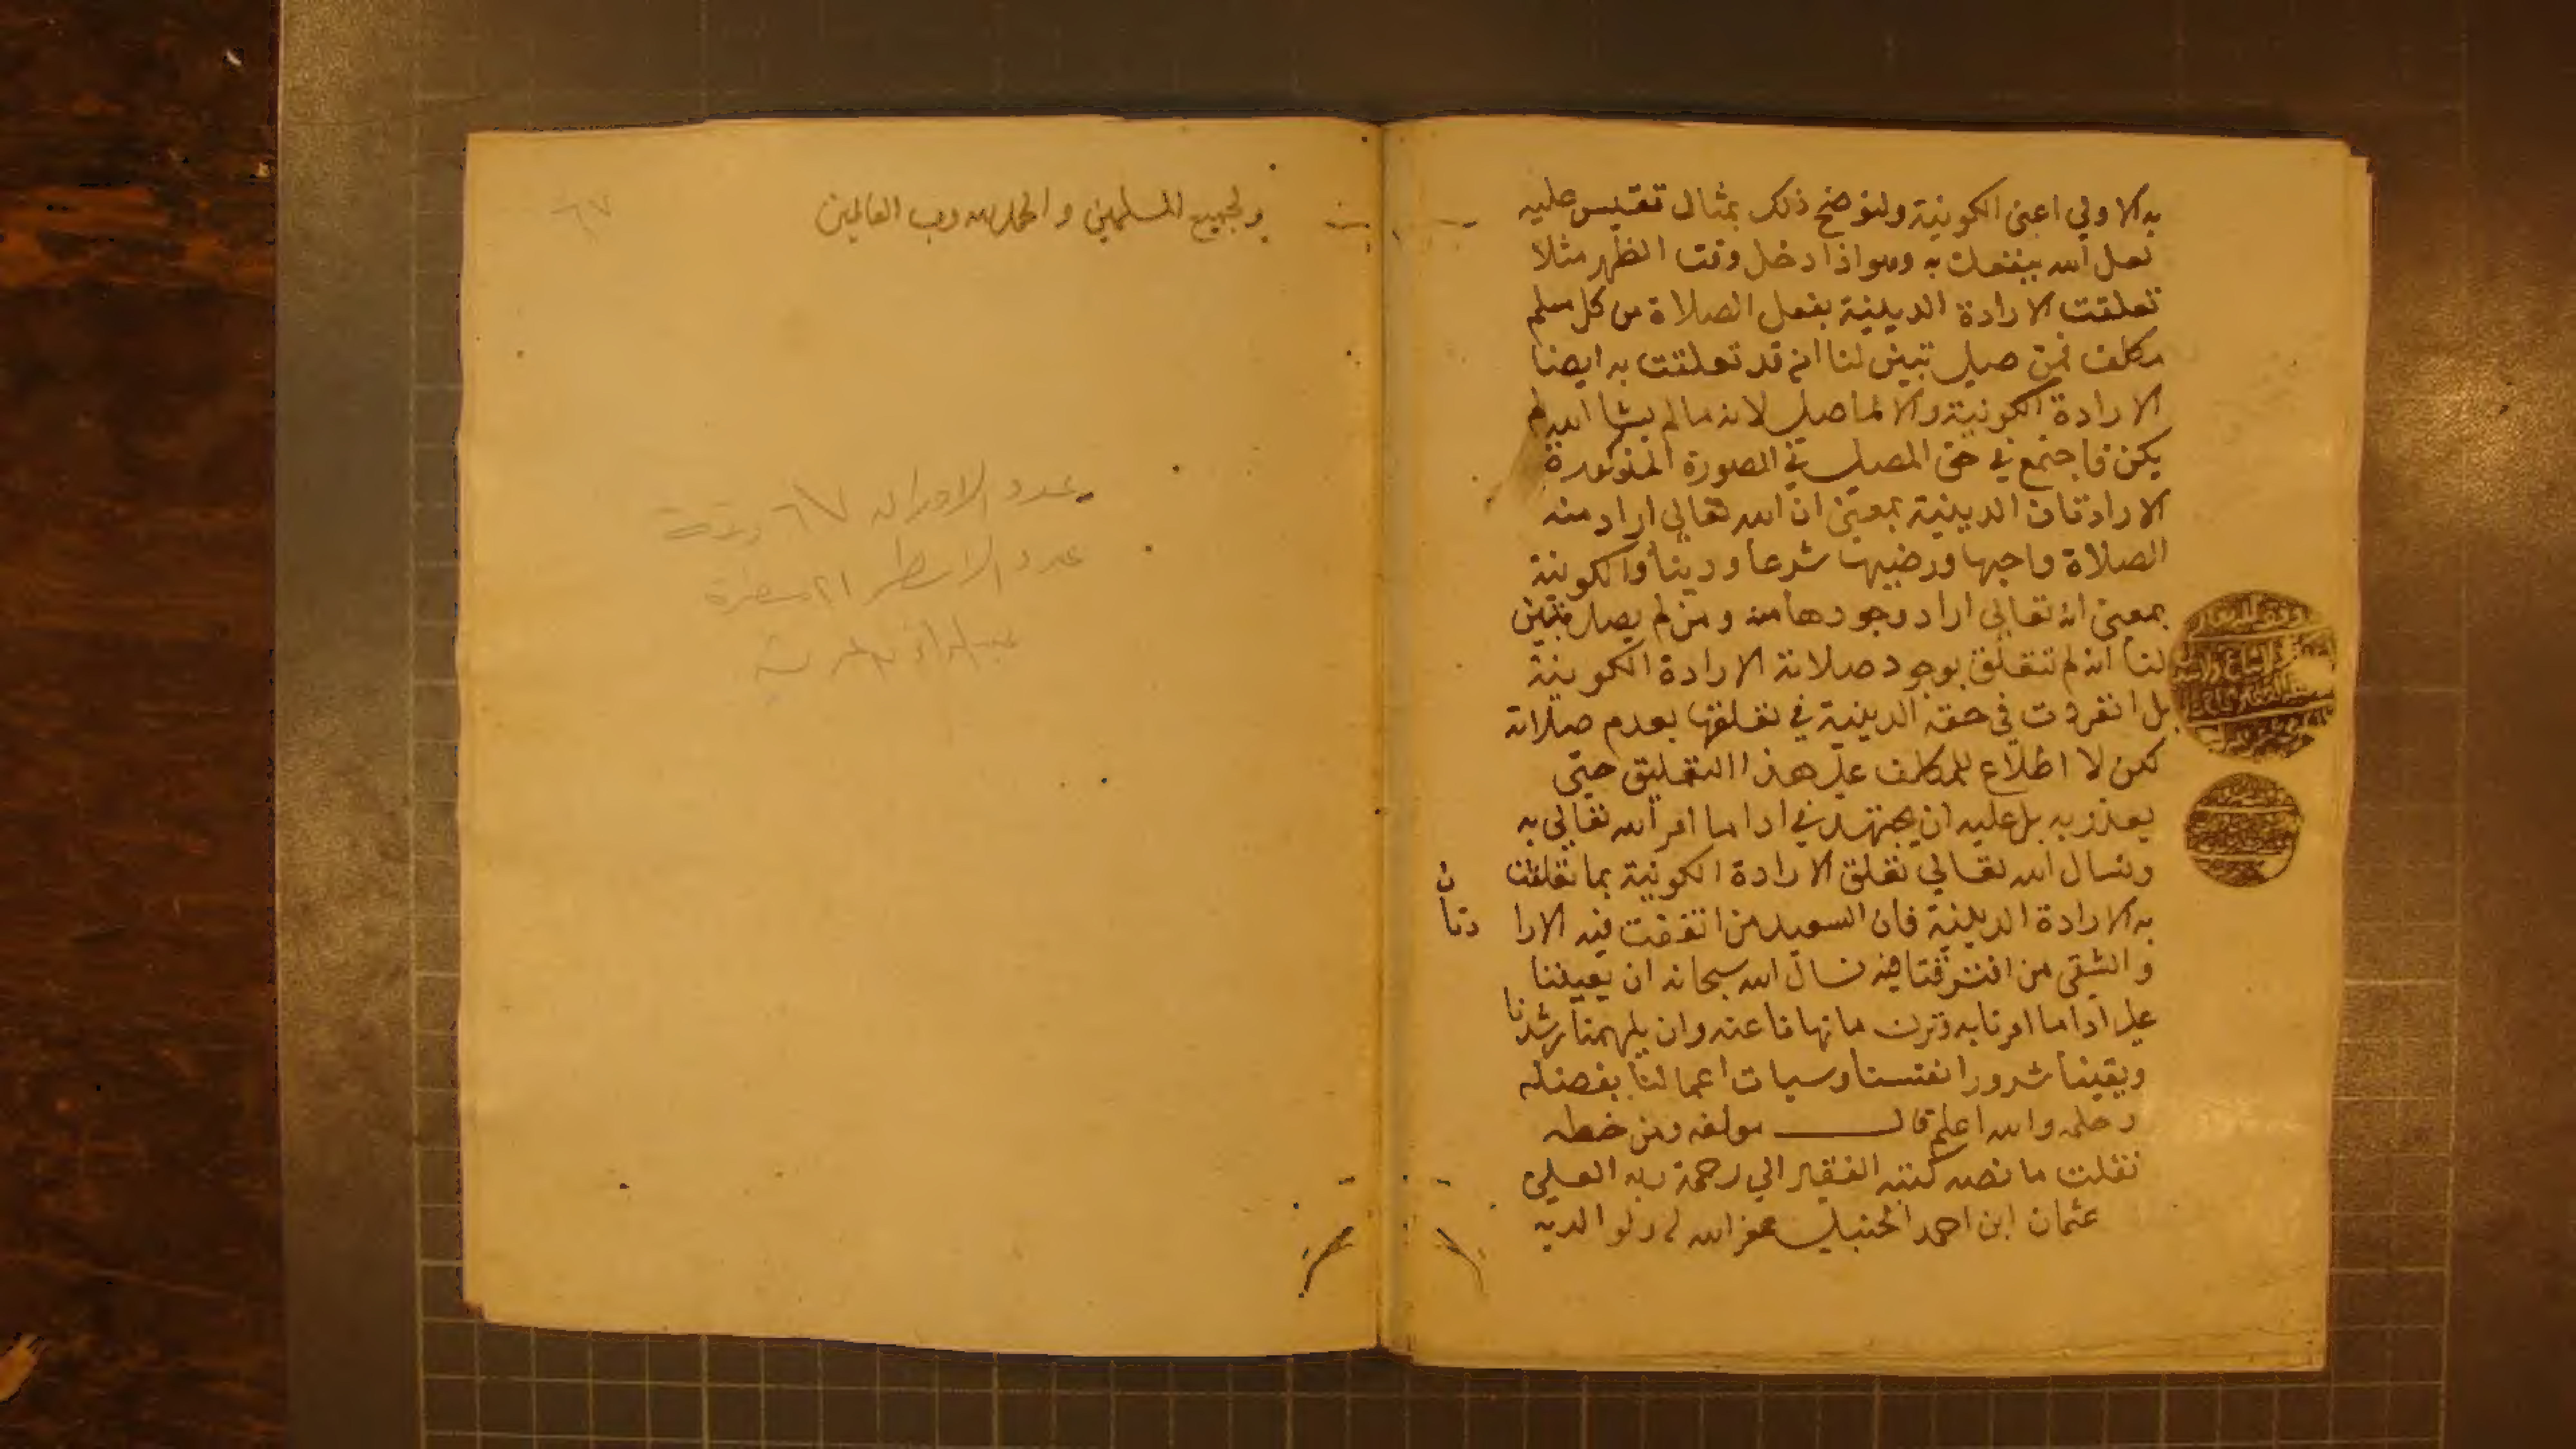 به الاولي اعني الكونية ولنوضح ذلك بمثال تقيس عليه
لعل الله ينفعك به وهو اذا دخل وقت الظهر مثلا
تعلقت الارادة الدينية بفعل الصلاة من كل مسلم
مكلف فمن صلي تبين لنا انه قد تعلقت به ايضا
الارادة الكونية والا لما صلي لانه ما لم يشا الله لم
يكن فاجتمع في حق المصلي في الصورة المذكورة
الارادتان الدينية بمعني ان الله تعالي اراد منه
الصلاة واحبها ورضيها شرعا ودينا والكونية
بمعني انه تعالي اراد وجودها منه ومن لم يصل فتبين
لنا انه لم تتعلق بوجود صلاته الارادة الكونية
بل انفردت في حقه الدينية في تعلقها بعدم صلاته
لكن لا اطلاع للمكلف علي هذا التعليق حتي
يعذر به بل عليه ان يجتهد في ادا ما امر الله تعالي به
ونسال الله تعالي تعلق الارادة الكونية بما تعلقت
به الارادة الدينية فان السعيد من اتفقت فيه الارا دتان
والشقي من افترقتا فيه نسال الله سبحانه ان يعيننا
علي ادا ما امرنا به وترك ما نهانا عنه وان يلهمنا رشدنا
ويقينا شرور انفسنا وسيات اعمالنا بفضله
وحلمه والله اعلم قال مولفه ومن خطه
نقلت ما نصه كتبه الفقير الي رحمة ربه العلي
عثمان ابن احمد الحنبلي غفر الله له ولوالديه
ولجميع المسلمين والحمد لله رب العالمين
٦٧
عدد الاوراق ٦٧ ورقة
عدد الاسطر ٢١ مسطرة